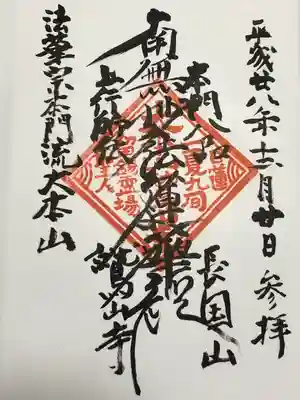 平成廿八年十二月廿日 参拝
本門八品
南無妙法蓮華経
上行所伝
長国山
鷲山寺
法華宗本門流大本山
一夏九旬
留錫霊場